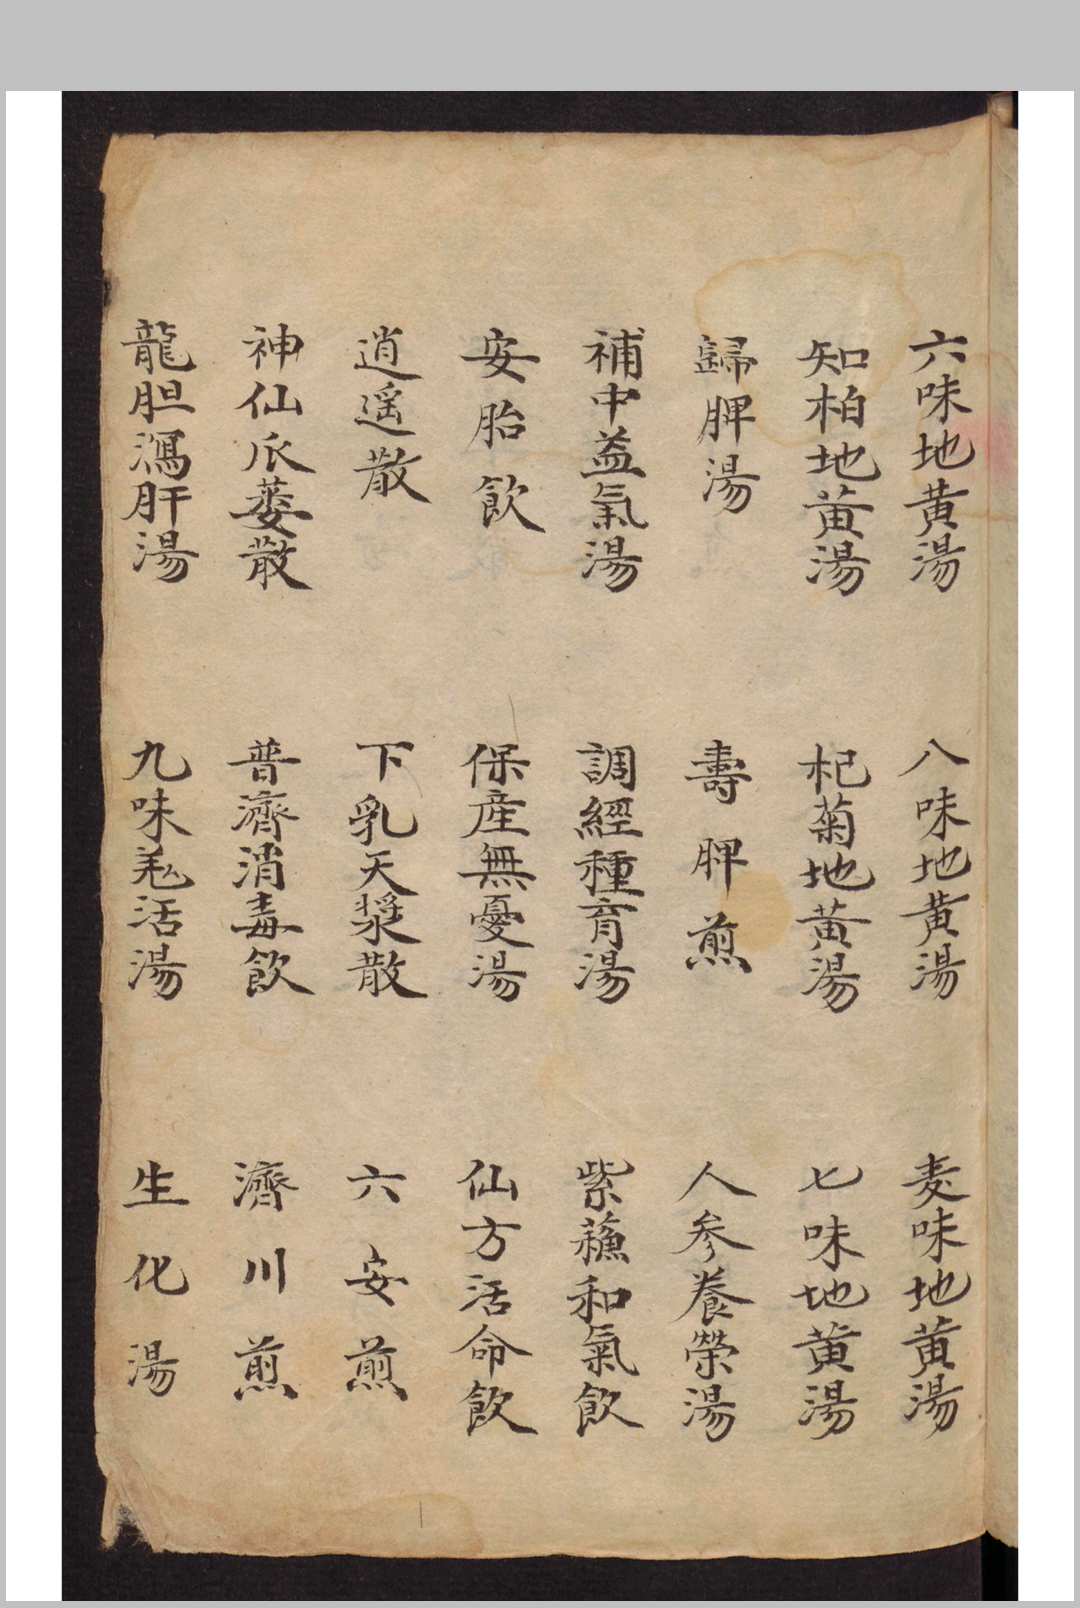 六味地黄湯
八味地黄湯
麦味地黄湯
知柏地黄湯
杞菊地黄湯
七味地黄湯
歸脾湯
壽脾煎
人参養榮湯
補中益氣湯
調經種育湯
紫蘓和氣飲
安胎飲
保産無憂湯
仙方活命飲
逍遥散
下乳天漿散
六安煎
神仙瓜蔞散
普濟消毒飲
濟川煎
龍胆瀉肝湯
九味羌活湯
生化湯